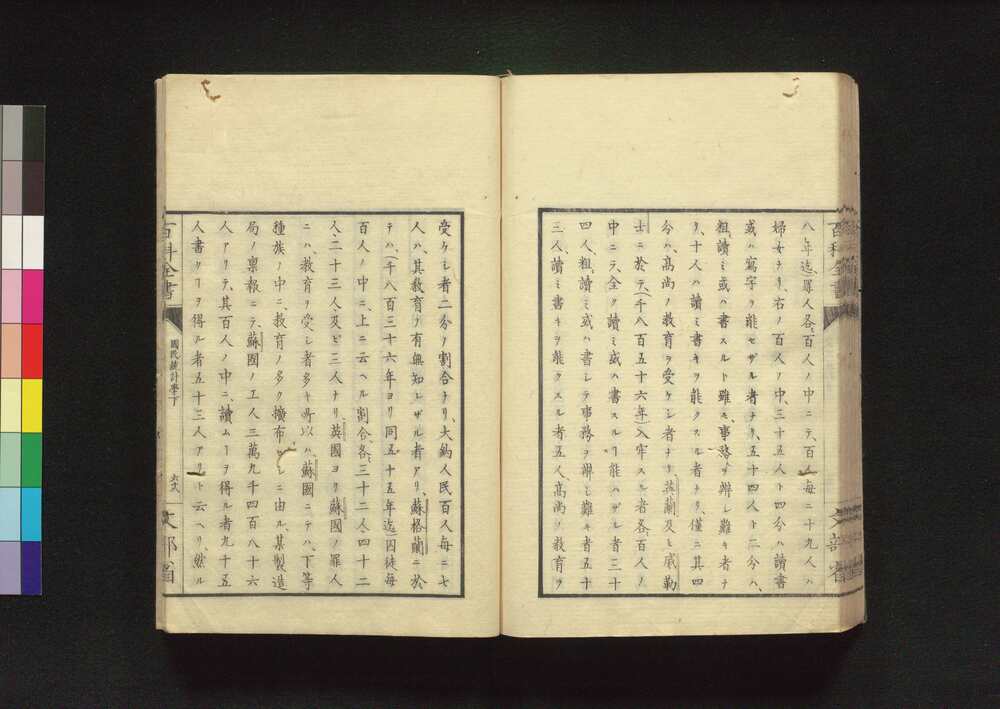 八年迄ニ罪人各々百人ノ中ニテ、百人每ニ十九人ハ
婦女ナリ、右ノ百人ノ中、三十五人ト四分ハ讀書
或ハ寫字ヲ能セザル者ナリ、五十四人ト二分ハ、
粗讀ミ或ハ書スルト雖モ、事務ヲ辨シ難キ者ナ
リ、十人ハ讀ミ書キヲ能クスル者ナリ、僅ニ其四
分ハ、高尚ノ敎育ヲ受ケシ者ナリ、英蘭及ヒ威勒
士ニ於テ、(千八百五十六年)入牢スル者各々百人ノ
中ニテ、全ク讀ミ或ハ書スルヿ能ハザル者三十
四人、粗讀ミ或ハ書シテ事務ヲ辨シ難キ者五十
三人、讀ミ書キヲ能クスル者五人、高尚ノ敎育ヲ
受ケシ者二分ノ割合ナリ、大鈎人民百人每ニ七
人ハ、其敎育ノ有無知レザル者アリ、蘇格蘭ニ於
テハ、(千八百三十六年ヨリ同五十五年迄)囚徒每
百人ノ中ニ、上ニ云ヘル割合、各々三十二人、四十二
人、二十三人、及ビ三人ナリ、英國ヨリ蘇國ノ罪人
ニハ敎育ヲ受シ者多キ所以ハ、蘇國ニテハ、下等
種族ノ中ニ、敎育ノ多ク擴布セシニ由ル、某製造
局ノ稟報ニテ、蘇國ノ工人三萬九千四百八十六
人アリテ、其百人ノ中ニ、讀ムヿヲ得ル者九十五
人書クヿヲ得ル者五十三人アリト云ヘリ、然ル
百科全書
國民統計學下
六八
文部省
百科全書
文部省